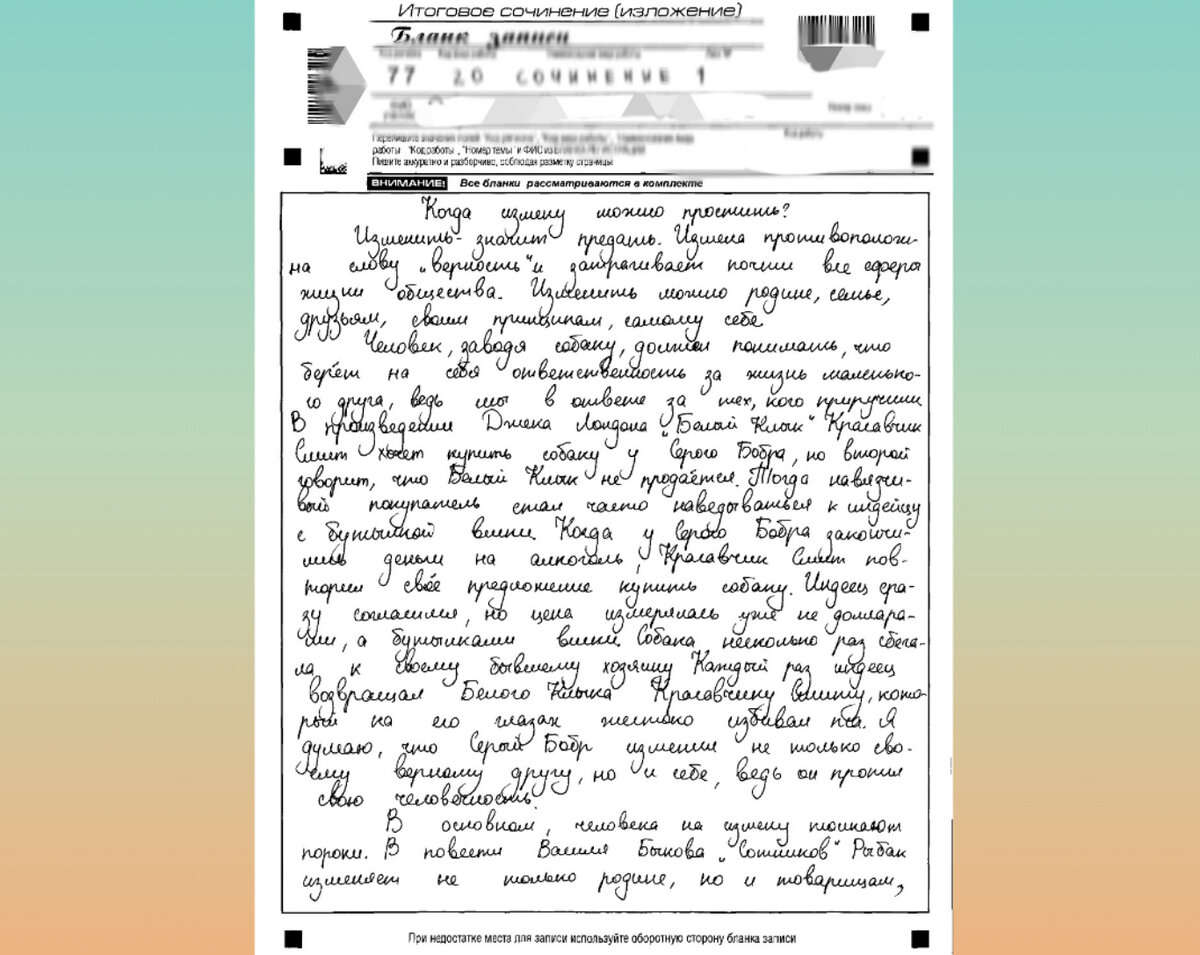 Итоговое сочинение (изложение)
Бланк записи
77 20 СОЧИНЕНИЕ 1
работы, "Код работы", "Номер темы" и ФИО из
Пишите аккуратно и разборчиво, соблюдая разметку страницы
ВНИМАНИЕ! Все бланки рассматриваются в комплекте
Когда измену можно простить?
Изменить- значит предать. Измена противополож-
на слову „верность" и затрагивает почти все сферы
жизни общества. Изменить можно родине, семье,
друзьям, своим принципам, самому себе
Человек, заводя собаку, должен понимать, что
берёт на себя ответственность за жизнь маленько-
го друга, ведь мы в ответе за тех, кого приручили
В произведении Джека Лондона „Белый Клык" Красавчик
Смит хочет купить собаку у Серого Бобра, но второй
говорит, что Белый Клык не продаётся. Тогда навязчи-
вый покупатель стал часто наведываться к индейцу
с бутылкой виски. Когда у Серого Бобра закончи-
лись деньги на алкоголь, Красавчик Смит пов-
торил своё предложение купить собаку. Индеец сра-
зу согласился, но цена измерялась уже не доллара-
ми, а бутылками виски. Собака несколько раз сбега-
ла к своему бывшему хозяину Каждый раз индеец
возвращал Белого Клыка Красавчику Смиту, кото-
рый на его глазах жестоко избивал пса. Я
думаю, что Серый Бобр изменил не только сво-
ему верному другу, но и себе, ведь он пропил
свою человечность.
В основном, человека на измену толкают
пороки. В повести Василя Быкова „Сотников" Рыбак
изменяет не только родине, но и товарищам,
При недостатке места для записи используйте оборотную сторону бланка записи